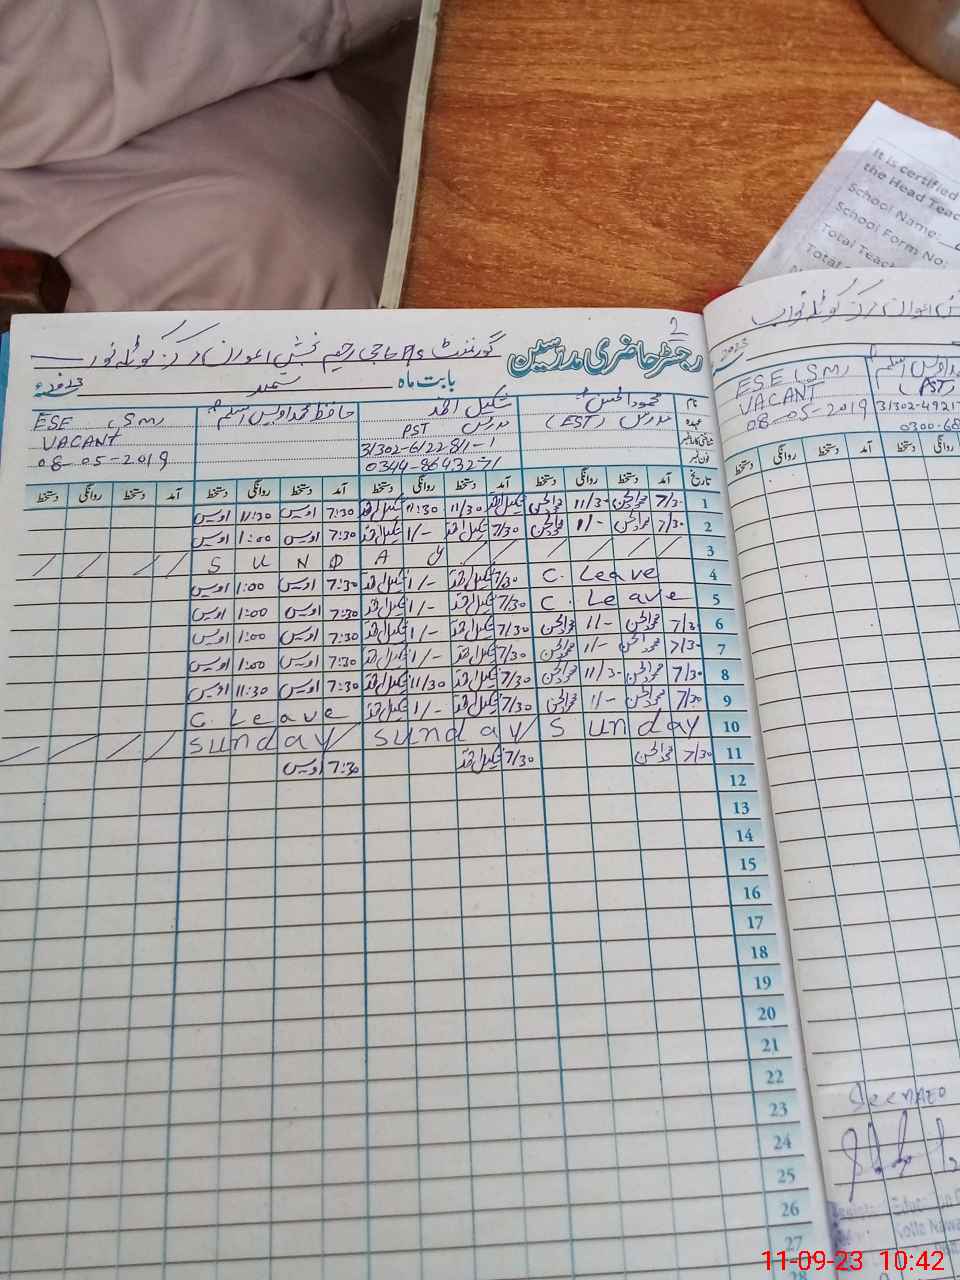 2
رجسٹر حاضری مدرسین
گورنمنٹ P/s حاجی رحیم بخش اعوان مرکز کوٹلہ نور
بابت ماہ ستمبر 2023ء
نام محمود الحسن شکیل احمد حافظ محمد اویس اسلم ESE (SM)
عہدہ مدرس (EST) مدرس PST VACANT
شناختی کارڈ نمبر 31302-6122811-1 08-05-2019
فون نمبر 0344-8643271
تاریخ آمد دستخط روانگی دستخط آمد دستخط روانگی دستخط آمد دستخط روانگی دستخط آمد دستخط روانگی دستخط
1 7/30 محمود الحسن 11/30 محمود الحسن شکیل احمد 11/30 11:30 شکیل احمد 7:30 اویس 11:30 اویس
2 7/30 محمود الحسن 1/- محمود الحسن 7/30 شکیل احمد 1/- شکیل احمد 7:30 اویس 1:00 اویس
3 S U N D A Y
4 C. Leave 7/30 شکیل احمد 1/- شکیل احمد 7:30 اویس 1:00 اویس
5 C. Leave 7/30 شکیل احمد 1/- شکیل احمد 7:30 اویس 1:00 اویس
6 7/30 محمود الحسن 1/- محمود الحسن 7/30 شکیل احمد 1/- شکیل احمد 7:30 اویس 1:00 اویس
7 7/30 محمود الحسن 1/- محمود الحسن 7/30 شکیل احمد 1/- شکیل احمد 7:30 اویس 1:00 اویس
8 7/30 محمود الحسن 11/30 محمود الحسن 7/30 شکیل احمد 11/30 شکیل احمد 7:30 اویس 11:30 اویس
9 7/30 محمود الحسن 1/- محمود الحسن 7/30 شکیل احمد 1/- شکیل احمد C. Leave
10 Sunday Sunday Sunday
11 7/30 محمود الحسن 7/30 شکیل احمد 7:30 اویس
12
13
14
15
16
17
18
19
20
21
22
23
24
25
26
27
28
It is certified
the Head Teac
School Name:
School Form No:
Total Teach
Total
2023
ESE (SM)
VACANT (PST)
08-05-2019 31302-49217
0300-68
آمد دستخط روانگی دستخط آمد دستخط روانگی
Education
Kotla Nawa
11-09-23 10:42